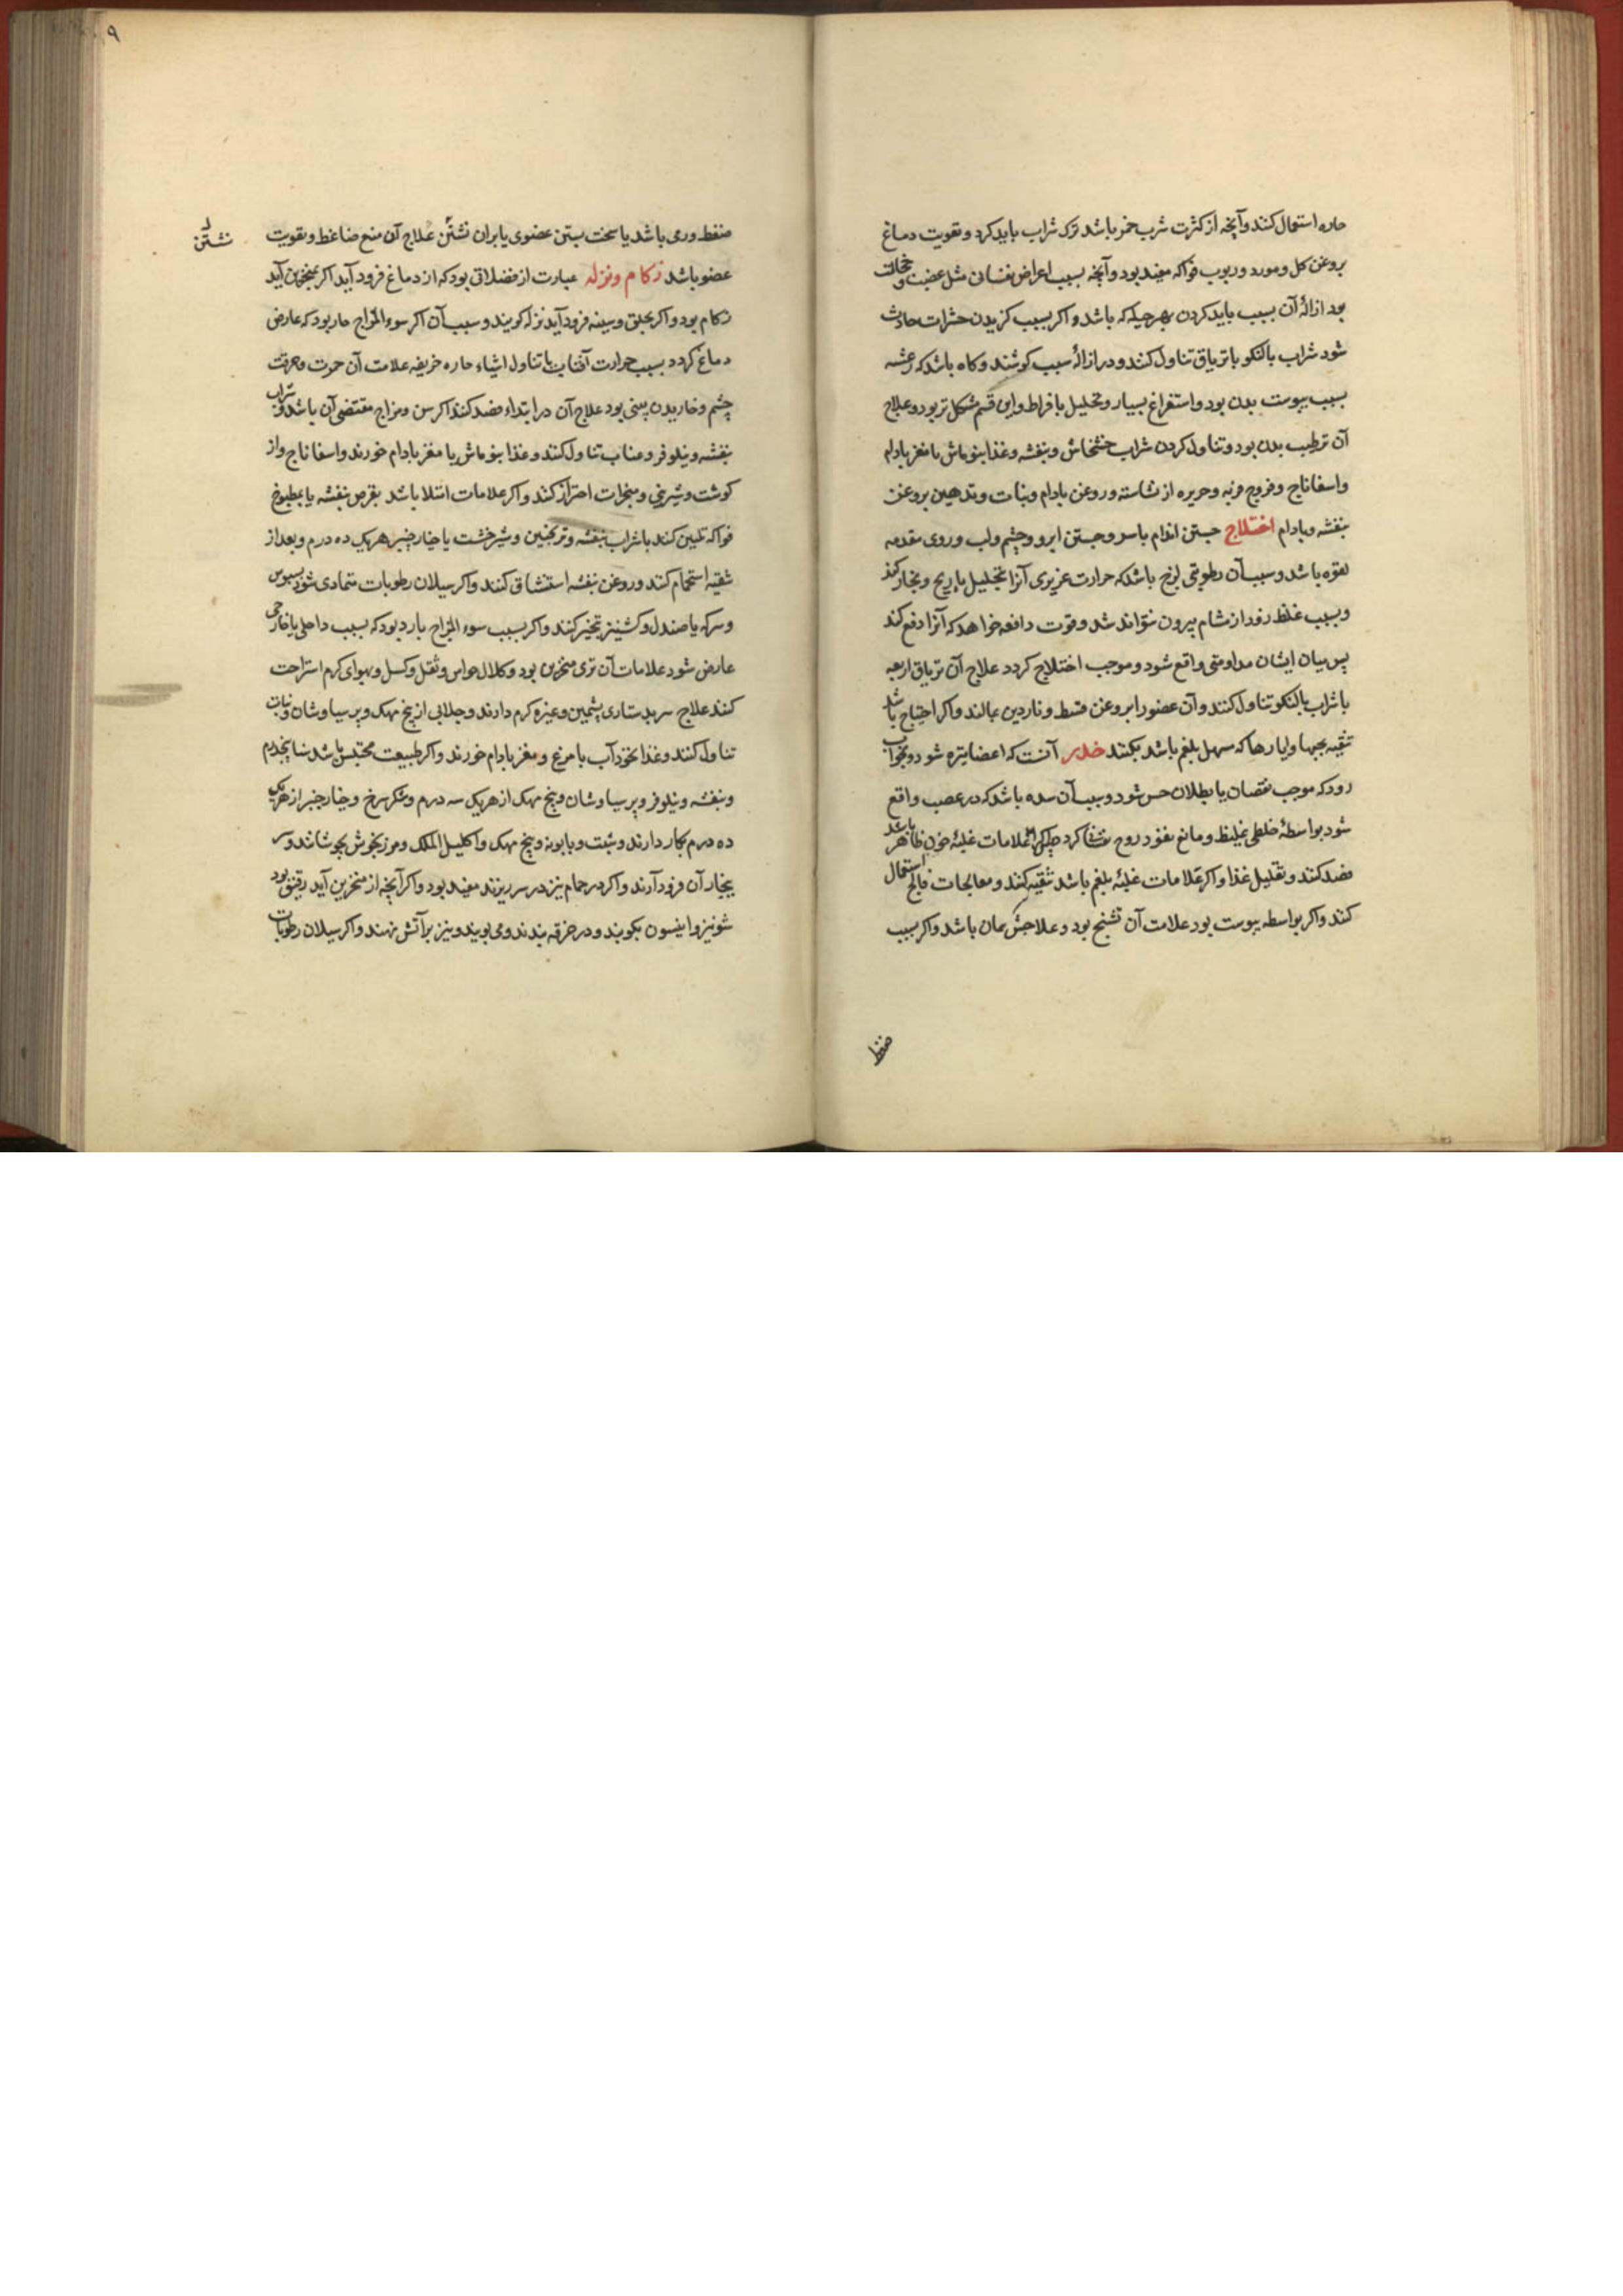 حاره استعمال کنند و آنچه از کثرت شرب خمر باشد ترک شراب باید کرد و تقویت دماغ
بروغن کل و مورد و ربوب فواکه مفید بود و آنچه بسبب اعراض نفسانی مثل غضب و خجالت
بود ازالهٔ آن بسبب باید کردن بهر حیله که باشد و اکر بسبب کزیدن حشرات حادث
شود شراب بالنکو با تریاق تناول کنند و در ازالهٔ سبب کوشند و کاه باشد که رعشه
بسبب یبوست بدن بود و استفراغ بسیار و تحلیل بافراط و این قسم مشکل تر بود و علاج
آن ترطیب بدن بود و تناول کردن شراب خشخاش و بنفشه و غذا بنوماش با مغز بادام
و اسفاناج و فروج فربه و حریره از نشاسته و روغن بادام و نبات و تدهین بروغن
بنفشه و بادام اختلاج جستن اندام باسر و جستن ابرو و چشم و لب و روی مقدمه
لقوه باشد و سبب آن رطوبتی لزج باشد که حرارت غریزی آنرا تحلیل با ریح و بخار کند
و بسبب غلظ زود از مشام بیرون نتواند شد و قوت دافعه خواهد که آنرا دفع کند
پس میان ایشان مداومتی واقع شود و موجب اختلاج کردد علاج آن تریاق اربعه
با شراب بالنکو تناول کنند و آن عضو را بروغن قسط و ناردین بمالند و اکر احتیاج باشد
تنقیه بحبها و ایارها که مسهل بلغم باشد بکنند خدر آنست که اعضا تیره شود و بخواب
رود که موجب نقصان یا بطلان حس شود و سبب آن سده باشد که در عصب واقع
شود بواسطهٔ خلطی غلیظ و مانع نفوذ روح کردد اکر علامات غلبهٔ خون ظاهر باشد
فصد کنند و تقلیل غذا و اکر علامات غلبهٔ بلغم باشد تنقیه کنند و معالجات فالج استعمال
کنند و اکر بواسطه یبوست بود علامت آن تشنج بود و علاجش همان باشد و اکر بسبب
ضغط
۹
ضغط ورمی باشد یا سخت بستن عضوی یا بران نشتن علاج آن منع ضاغط و تقویت
نشتن
عضو باشد زکام و نزله عبارت از فضلاتی بود که از دماغ فرود آید اکر بمنخرین آید
زکام بود و اکر بحلق و سینه فرود آید نزله کویند و سبب آن اکر سوء المزاج حار بود که عارض
دماغ کردد بسبب حرارت آفتاب یا تناول اشیاء حاره حریفه علامت آن حمرت و حرقت
چشم و خاریدن بینی بود علاج آن در ابتداء فصد کنند اکر سن و مزاج مقتضی آن باشد و شراب
بنفشه و نیلوفر و عناب تناول کنند و غذا بنوماش با مغز بادام خورند و اسفاناج و از
کوشت و شیرینی و مبخرات احتراز کنند و اکر علامات امتلا باشد بقرص بنفشه یا بمطبوخ
فواکه تلیین کنند با شراب بنفشه و ترنجبین و شیرخشت یا خیارچنبر هریک ده درم و بعد از
تنقیه استحمام کنند و روغن بنفشه استنشاق کنند و اکر سیلان رطوبات متمادی شود بسبوس
و سرکه یا صندل و کشنیز تبخیر کنند و اکر بسبب سوء المزاج بارد بود که بسبب داخلی یا خارجی
عارض شود علامات آن تری منخرین بود و کلال حواس و ثقل و کسل و بهوای کرم استراحت
کنند علاج سر بدستاری پشمین و غیره کرم دارند و جلابی از بیخ مهک و پرسیاوشان و نبات
تناول کنند و غذا نخوداب با مرغ و مغز بادام خورند و اکر طبیعت محتبس باشد سنا پنجدرم
و بنفشه و نیلوفر و پرسیاوشان و بیخ مهک از هریک سه درم و شکر سرخ و خیار چنبر از هریک
ده درم بکار دارند و شبت و بابونه و بیخ مهک و اکلیل الملک و مرزنجوش بجوشانند و سر
ببخار آن فرود آرند و اکر در حمام نیز در سر ریزند مفید بود و اکر آنچه از منخرین آید رقیق بود
شونیز و انیسون بکوبند و در خرقه بندند و می بویند و نیز بر آتش نهند و اکر سیلان رطوبات